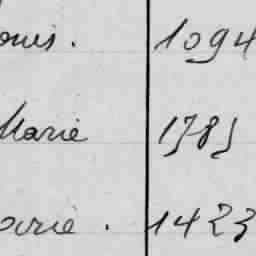 ouis. 1094
Marie 1785
arie. 1423